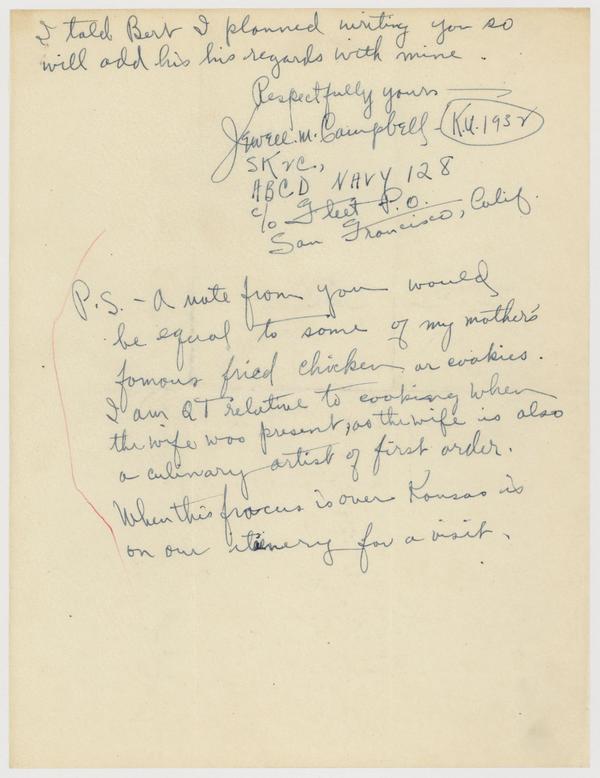 I told Bert I planned writing you so
will add his his regards with mine.
Respectfully yours
Jewell. M. Campbell - K.U. 1932
SK2C,
ABCD NAVY 128
c/o Fleet P.O.
San Francisco, Calif.
P.S. - A note from you would
be equal to some of my mother's
famous fried chicken or cookies.
I am QT relative to cooking when
the wife was present, as the wife is also
a culinary artist of first order.
When this fracus is over Kansas is
on our itinery for a visit.